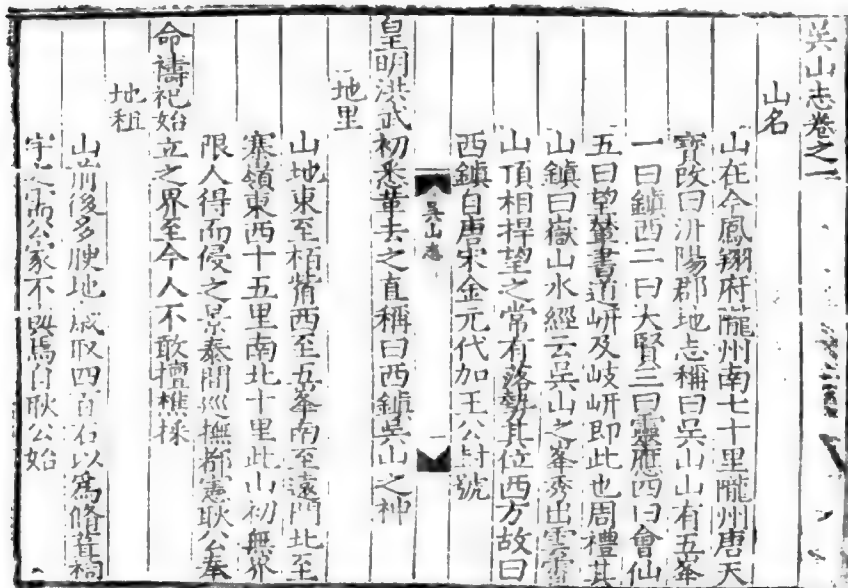 吳山志卷之一
山名
山在今鳳翔府隴州南七十里隴州唐天
寶改曰汧陽郡地志稱曰吳山山有五峯
一曰鎮西二曰大賢三曰靈應四曰會仙
五曰望輦書道岍及岐岍即此也周禮其
山鎮曰嶽山水經云吳山之峯秀出雲霄
山頂相捍望之常有落勢其位西方故曰
西鎮自唐宋金元代加王公封號
吳山志
一
皇明洪武初悉革去之直稱曰西鎮吳山之神
地里
山地東至栢觜西至五峯南至遠門北至
寨嶺東西十五里南北十里此山初無界
限人得而侵之景泰間巡撫都憲耿公奉
命禱祀始立之界至今人不敢擅樵採
地租
山前後多腴地歲取四百石以為脩葺祠
宇之需公家不與焉自耿公始